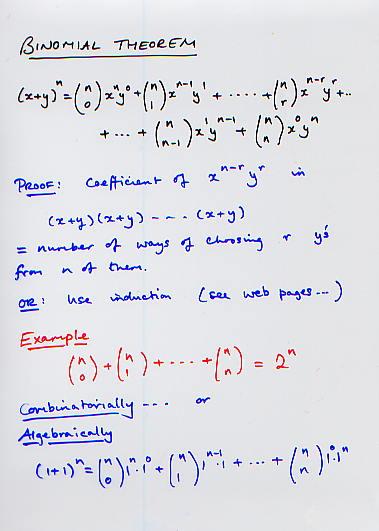 BINOMIAL THEOREM
(x+y)^n = (n 0) x^n y^0 + (n 1) x^{n-1} y^1 + ..... + (n r) x^{n-r} y^r + ..
+ ... + (n n-1) x^1 y^{n-1} + (n n) x^0 y^n
PROOF: Coefficient of x^{n-r} y^r in
(x+y)(x+y) --- (x+y)
= number of ways of choosing r y's
from n of them.
OR: Use induction (see web pages...)
Example
(n 0) + (n 1) + ..... + (n n) = 2^n
Combinatorially --- or
Algebraically
(1+1)^n = (n 0) 1^n.1^0 + (n 1) 1^{n-1}.1 + ... + (n n) 1^0.1^n